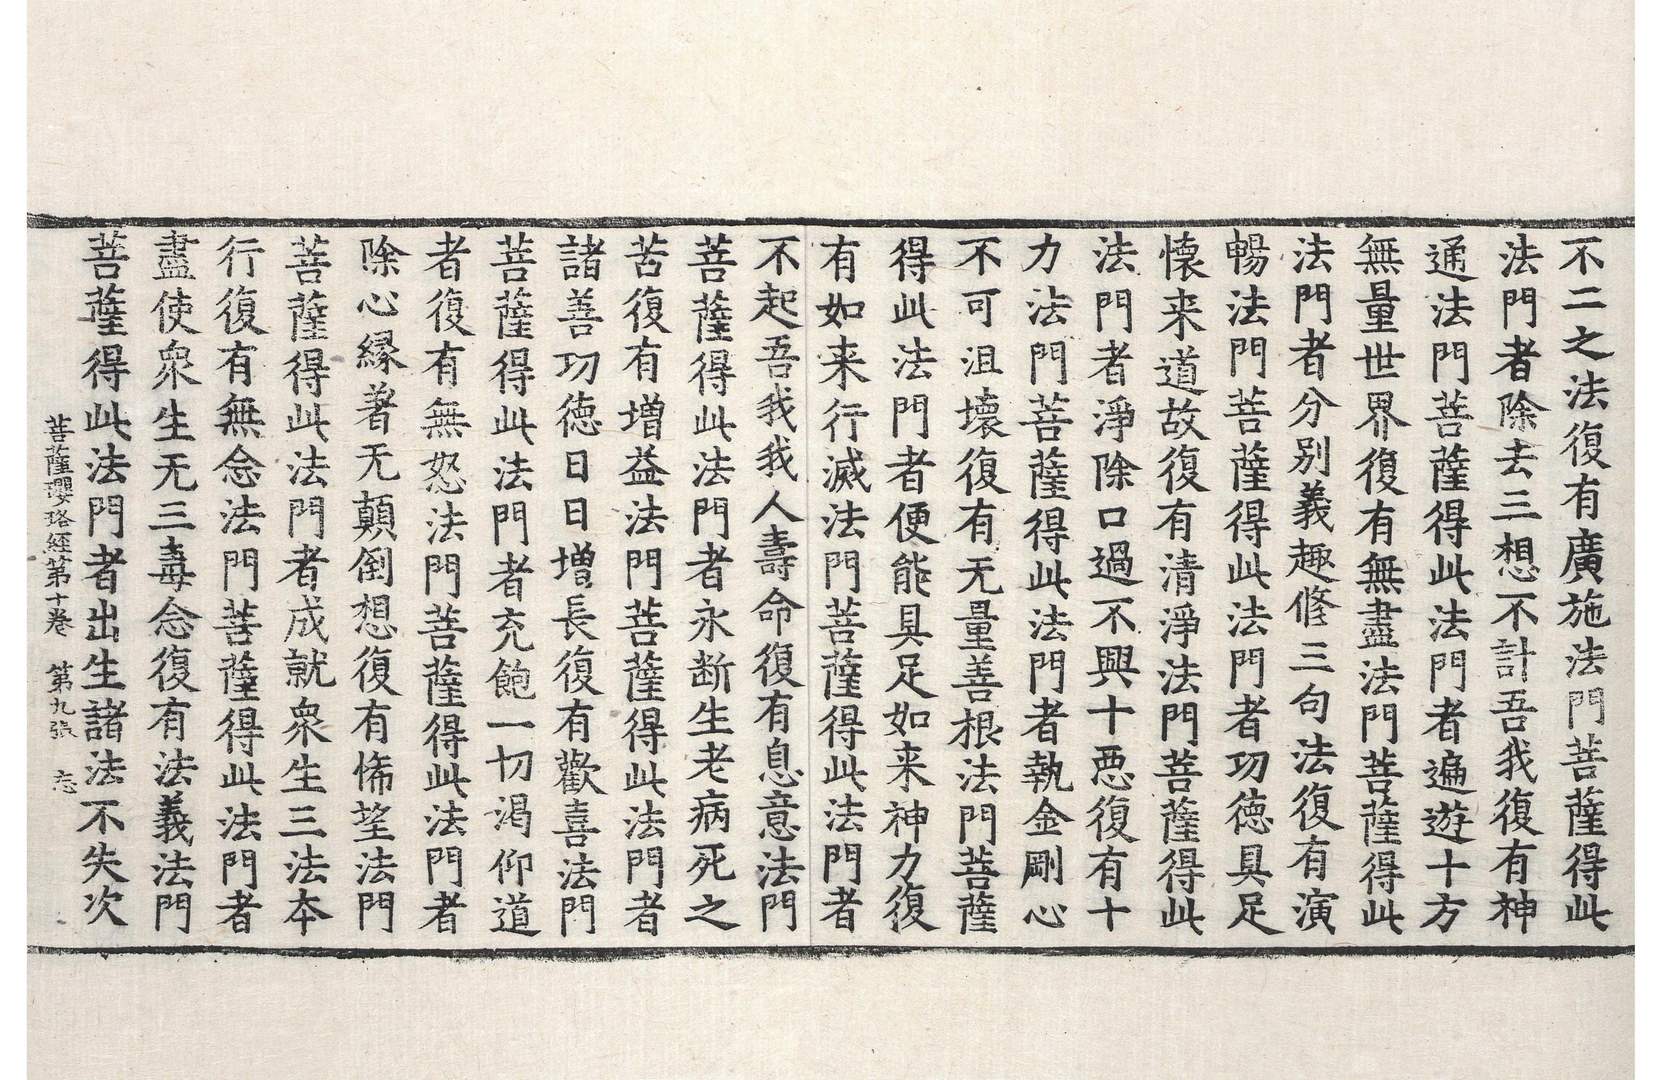 不二之法復有廣施法門菩薩得此
法門者除去三想不計吾我復有神
通法門菩薩得此法門者遍遊十方
無量世界復有無盡法門菩薩得此
法門者分別義趣修三句法復有演
暢法門菩薩得此法門者功德具足
懷来道故復有清淨法門菩薩得此
法門者淨除口過不興十惡復有十
力法門菩薩得此法門者執金剛心
不可沮壞復有无量善根法門菩薩
得此法門者便能具足如来神力復
有如来行滅法門菩薩得此法門者
不起吾我我人壽命復有息意法門
菩薩得此法門者永断生老病死之
苦復有增益法門菩薩得此法門者
諸善功德日日增長復有歡喜法門
菩薩得此法門者充飽一切渴仰道
者復有無怒法門菩薩得此法門者
除心縁著无顛倒想復有悕望法門
菩薩得此法門者成就衆生三法本
行復有無念法門菩薩得此法門者
盡使衆生无三毒念復有法義法門
菩薩得此法門者出生諸法不失次
菩薩瓔珞經第十卷　第九張　忘